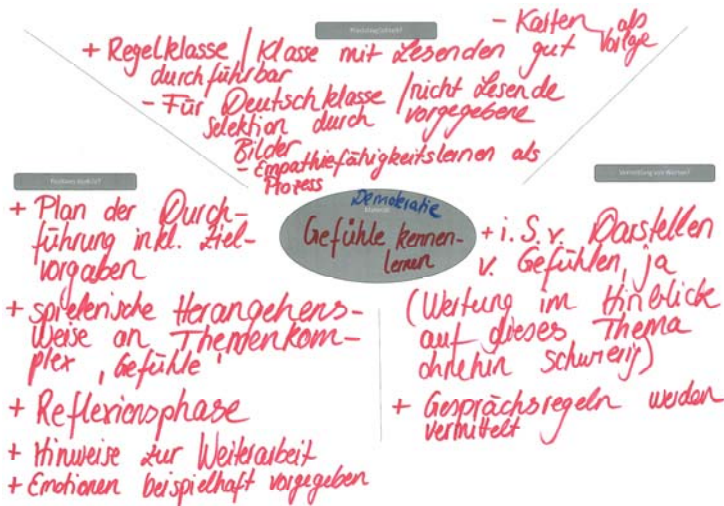 Praxistauglichkeit?
- Karten als
Vorlage
+ Regelklasse / Klasse mit Lesenden gut
durchführbar
- Für Deutschklasse / nicht Lesende
selektion durch vorgegebene
Bilder
- Empathiefähigkeitslernen als
Prozess
Positive Aspekte?
+ Plan der Durch-
führung inkl. Ziel-
vorgaben
+ spielerische Herangehens-
weise an Themenkom-
plex 'Gefühle'
+ Reflexionsphase
+ Hinweise zur Weiterarbeit
+ Emotionen beispielhaft vorgegeben
Demokratie
Material:
Gefühle kennen-
lernen
Vermittlung von Werten?
+ i. S. v. Darstellen
v. Gefühlen, ja
(Wertung im Hinblick
auf dieses Thema
ohnehin schwierig)
+ Gesprächsregeln werden
vermittelt